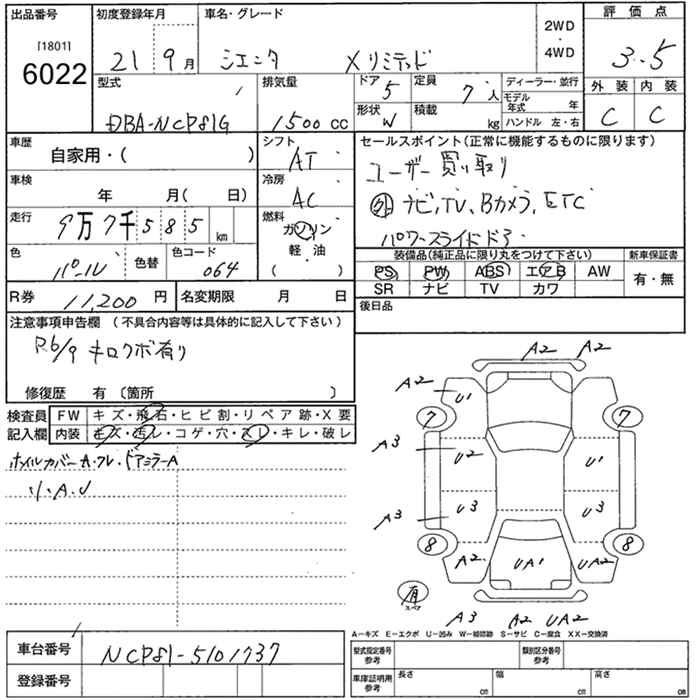 出品番号 初度登録年月 車名・グレード 2WD・4WD 評価点
[1801]
6022 21 9月 シエンタ Xリミテッド 3.5
型式 排気量 ドア 5 定員 7人 ディーラー・並行 外装 内装
DBA-NCP81G 1500cc 形状 W 積載 kg モデル年式 年 C C
ハンドル 左・右
車歴 自家用・( ) シフト AT セールスポイント(正常に機能するものに限ります)
車検 年 月( 日) 冷房 AC ユーザー買い取り
走行 9万7千585km 燃料 ガソリン 軽・油 ( ) 外 ナビ,TV、Bカメラ,ETC
パワースライドドア
色 パール 色替 色コード 064 装備品(純正品に限り丸をつけて下さい) 新車保証書
PS PW ABS エアB AW 有・無
SR ナビ TV カワ
R券 11,200円 名変期限 月 日 後日品
注意事項申告欄 (不具合内容等は具体的に記入して下さい)
キロクボ有り
修復歴 有 〔箇所 〕
検査員記入欄 FW キズ・飛石・ヒビ割・リペア跡・X要
内装 キズ・汚レ・コゲ・穴・スレ・キレ・破レ
ホイルカバーA・フレ・ドアミラーA
リ.A.U
A2 A2
A2 U1
7 7
A3 U2 U1
A3 U3 U3
8 8
A2 UA1 UA2
有 スペア
A3 A2 UA2
A−キズ E−エクボ U−凹み W−補修跡 S−サビ C−腐食 XX−交換済
車台番号 NCP81-5101737 型式指定番号参考 類別区分番号参考
登録番号 車庫証明用参考 長さ cm 幅 cm 高さ cm